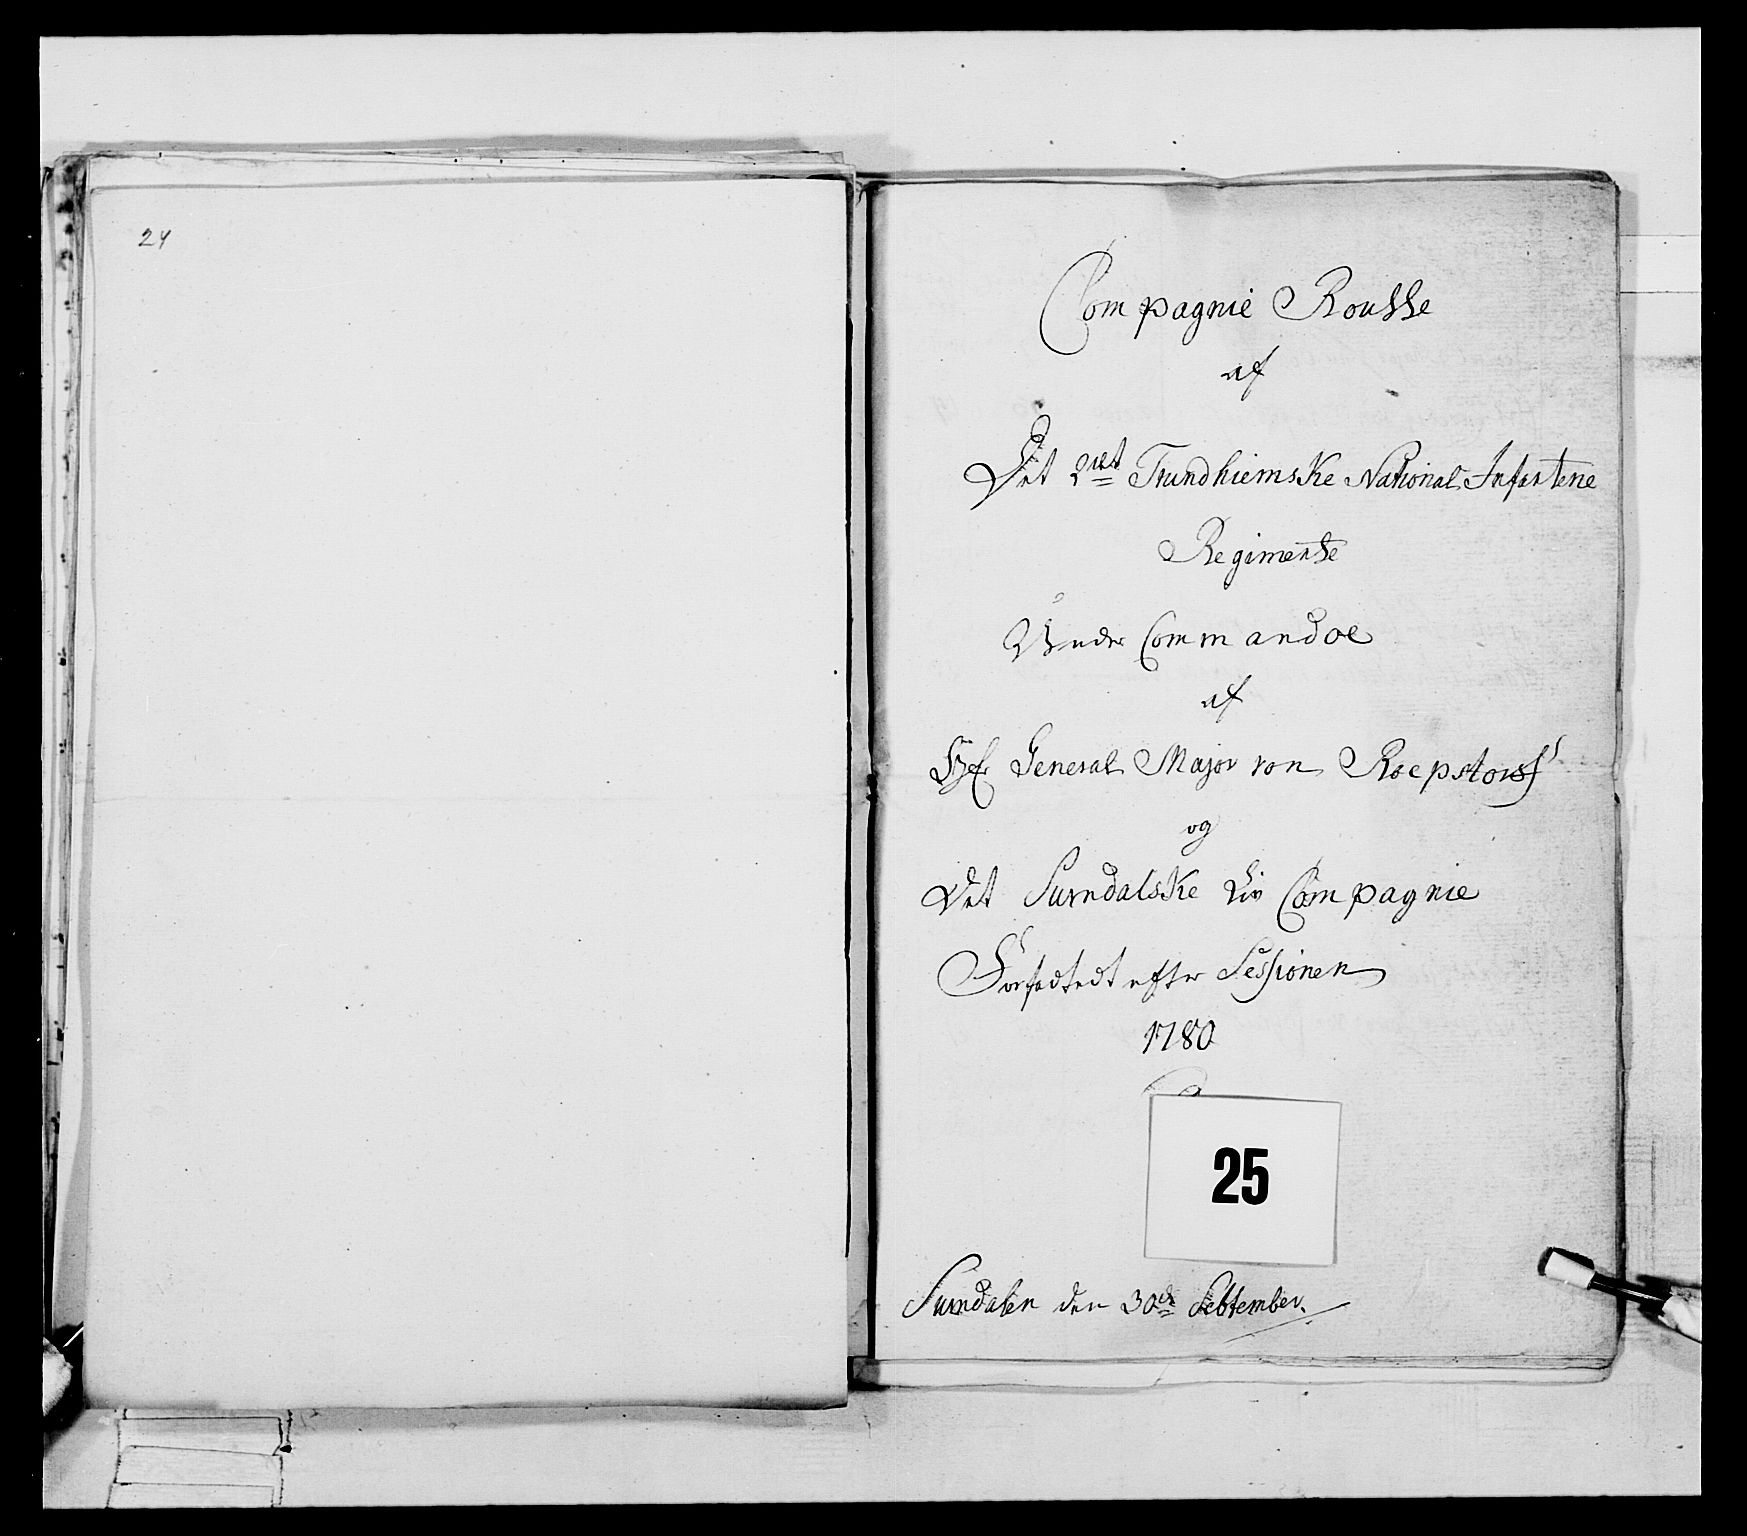 24
Compagnie Roulle
af
Det 2det Trundhiemske National Infanterie
Regimente
Under Commandoe
af
Hr General Major von Roepstorff
og
Det Surndalske Liv Compagnie
Forfadtedt efter Sessionen
1780
25
Surndalen den 30de Sebtember.